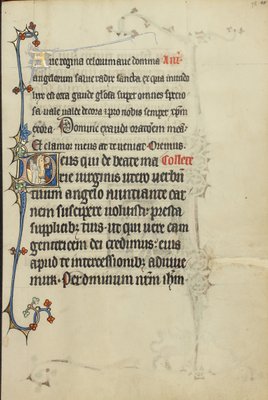 Aue regina celorum aue domina Ant
angelorum salue radix sancta ex qua mundo
lux est orta gaude gl'osa super omnes specio
sa. uale ualde decora et pro nobis semper xpm
exora. Domine exaudi orationem mea.
Et clamor meus at te ueniat Oremus.
Deus qui de beate ma Collecte
rie uirginis utero uerbu
tuum angelo nuntiante car
nem suscipere uoluisti: presta
supplicibus tuis. ut qui uere eam
genitricem dei credimus: eius
apud te intercessionibus adiuue
mur. Per dominum nrm ihm